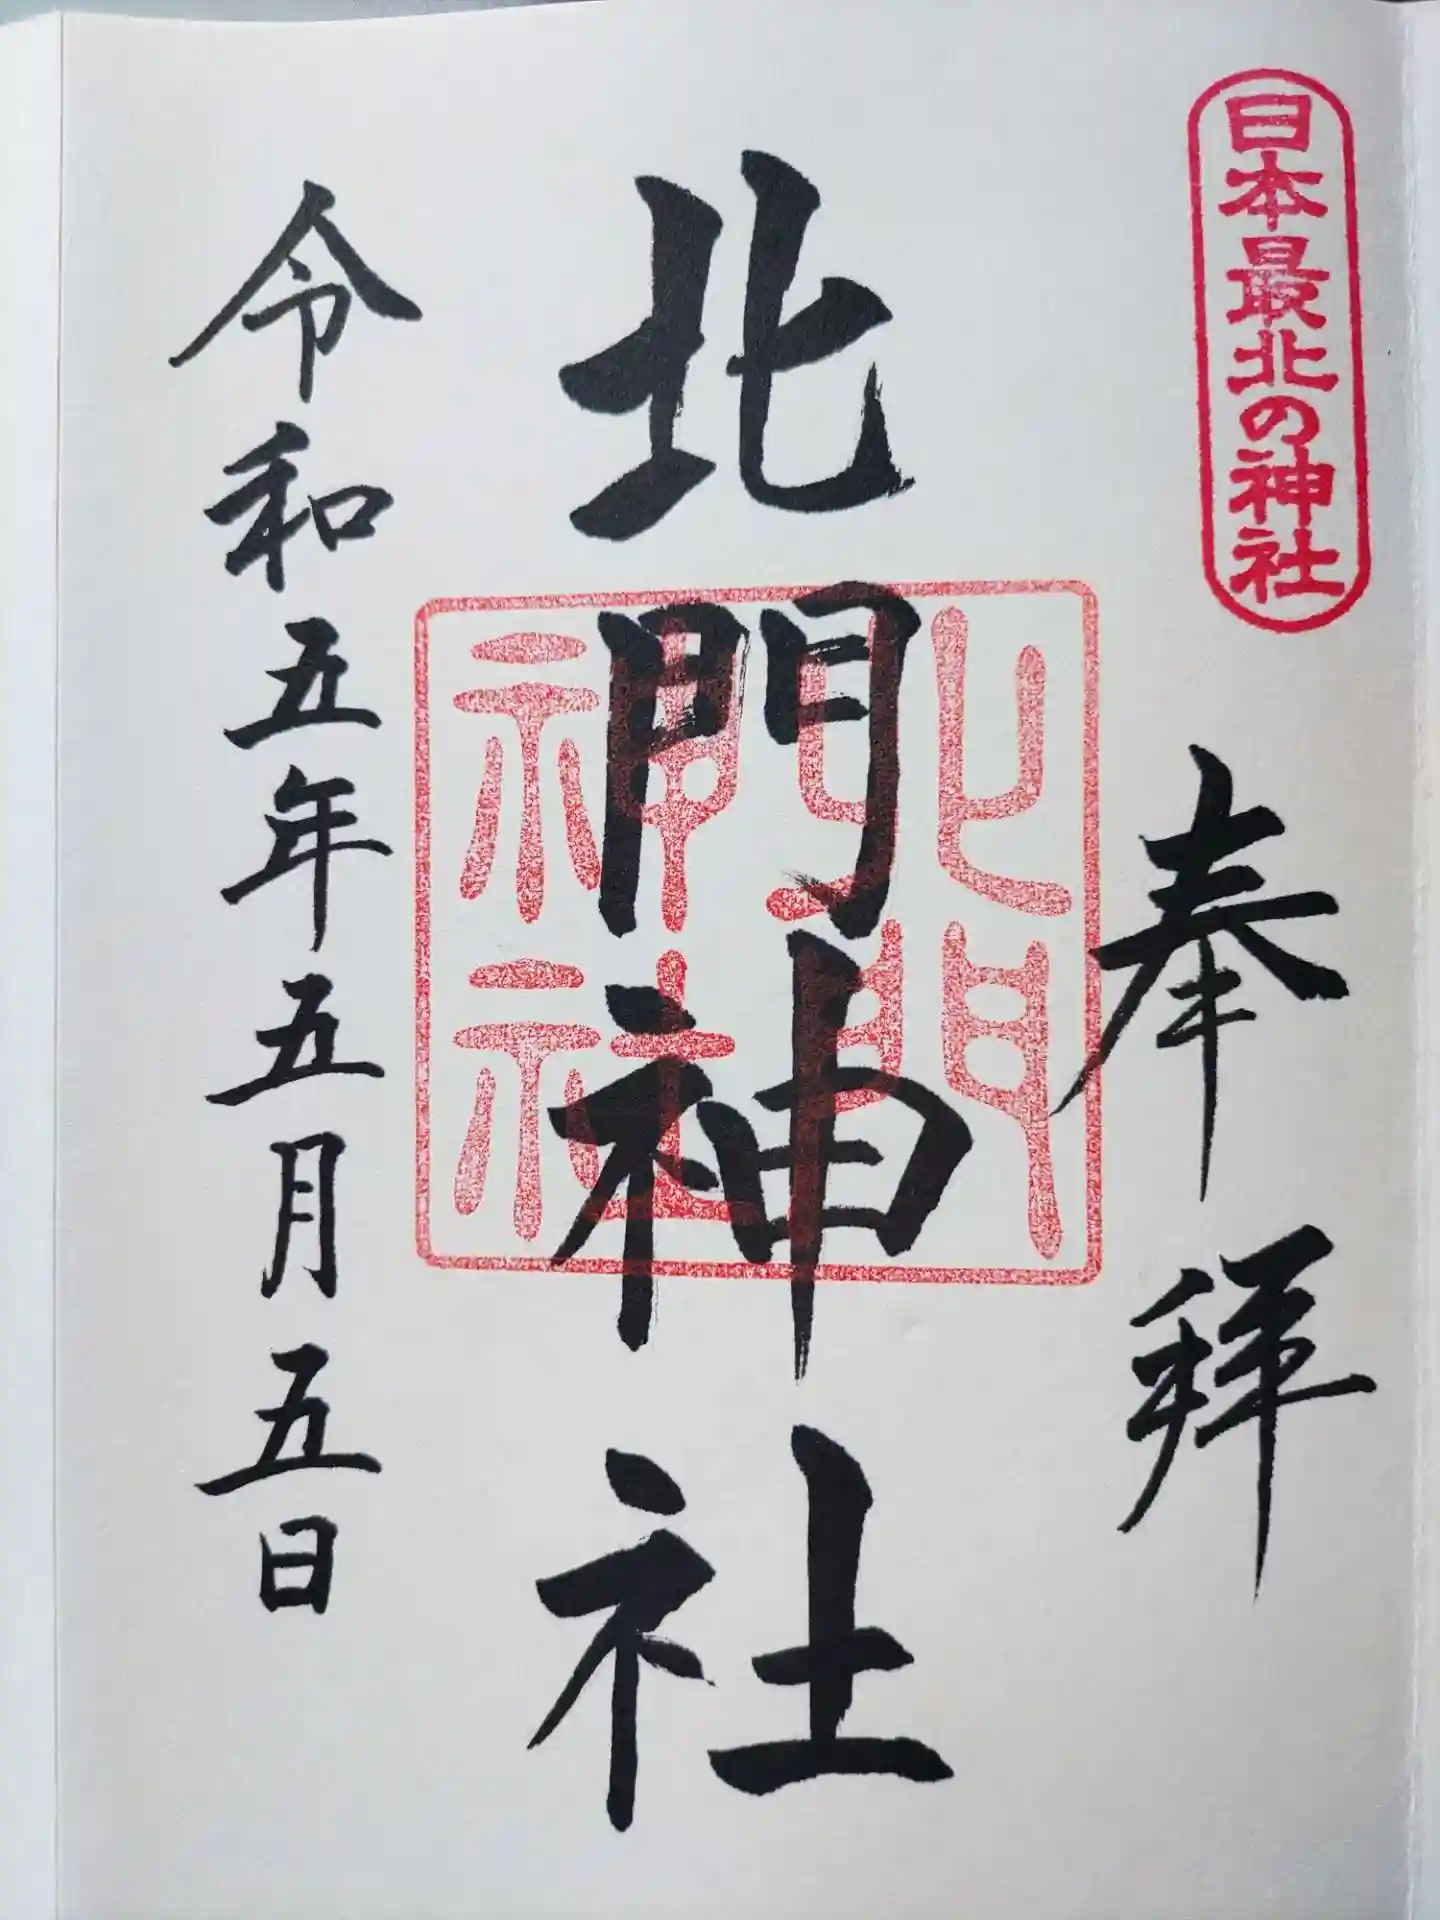 日本最北の神社
奉拝
北門神社
北門
神社
令和五年五月五日